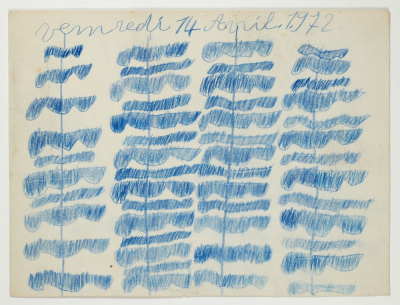 vemredi 14 Avril. 1972